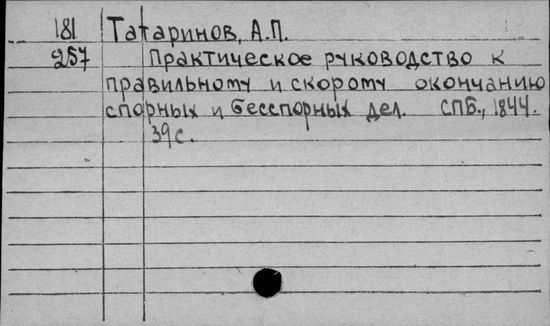 181 Татаринов, А.П.
257 Практическое руководство к
правильному и скорому окончанию
спорных и бесспорных дел. СПБ., 1844.
39с.